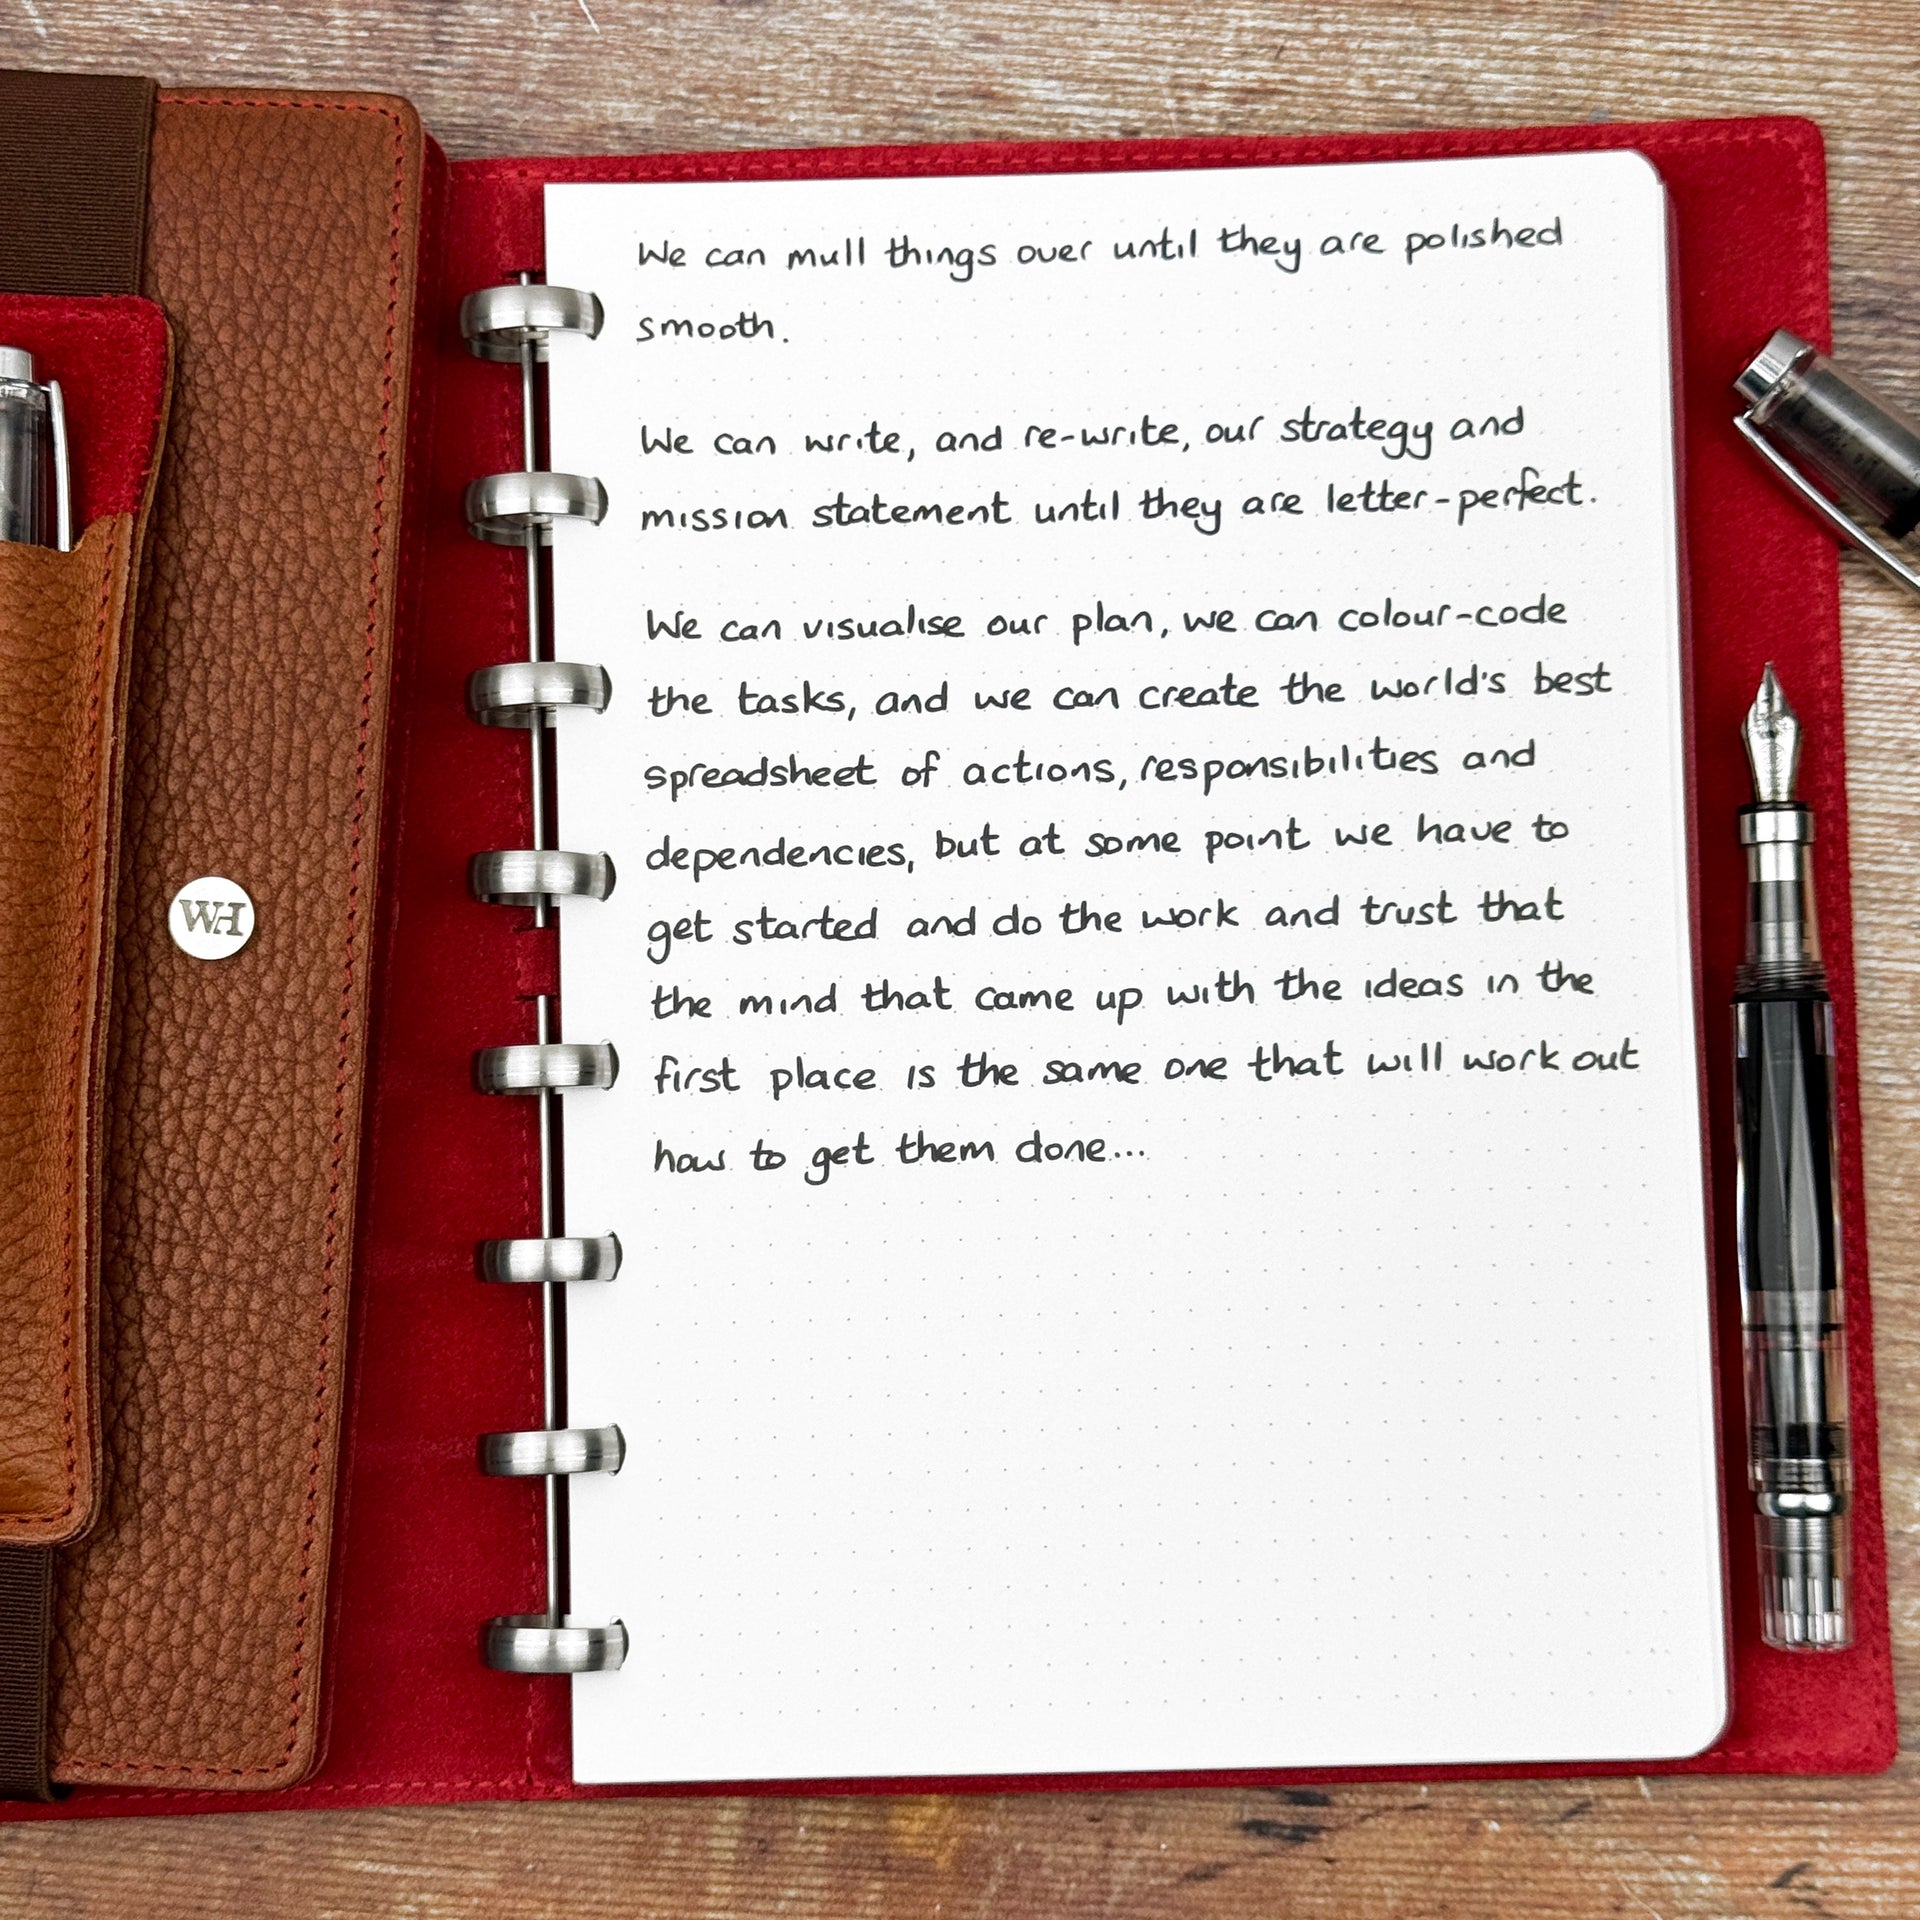 We can mull things over until they are polished
smooth.
We can write, and re-write, our strategy and
mission statement until they are letter-perfect.
We can visualise our plan, we can colour-code
the tasks, and we can create the world's best
spreadsheet of actions, responsibilities and
dependencies, but at some point we have to
get started and do the work and trust that
the mind that came up with the ideas in the
first place is the same one that will work out
how to get them done...
WH